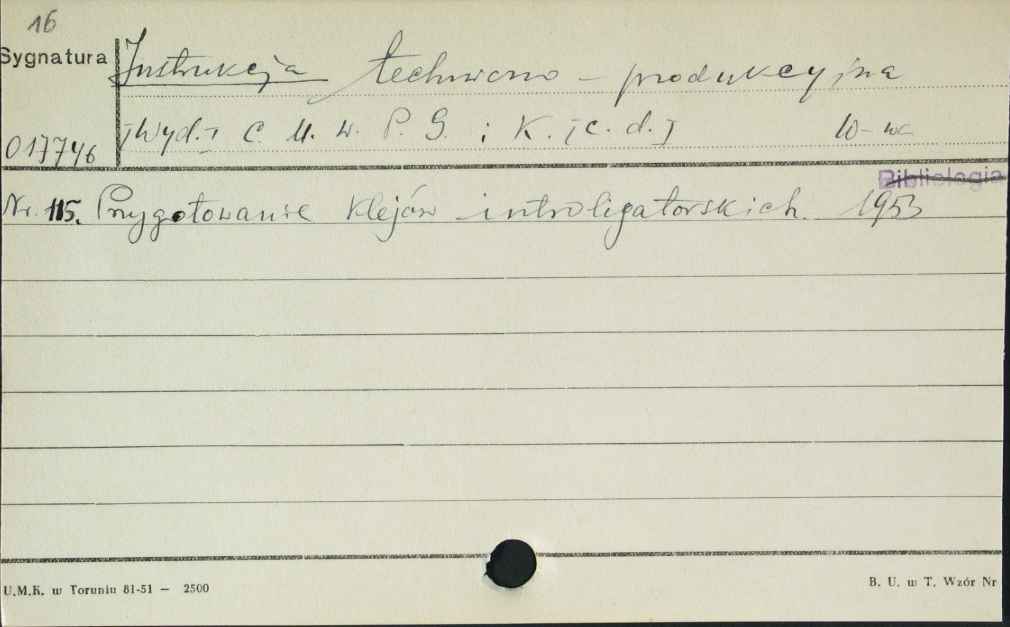 16
Sygnatura
Instrukcja techniczno - produkcyjna
017746
[Wyd.] C. U. W. P. G. i K. [c. d.] W-wa
Bibliologia
Nr. 115. Przygotowanie klejów introligatorskich. 1953
U.M.K. w Toruniu 81-51 — 2500
B. U. w T. Wzór Nr